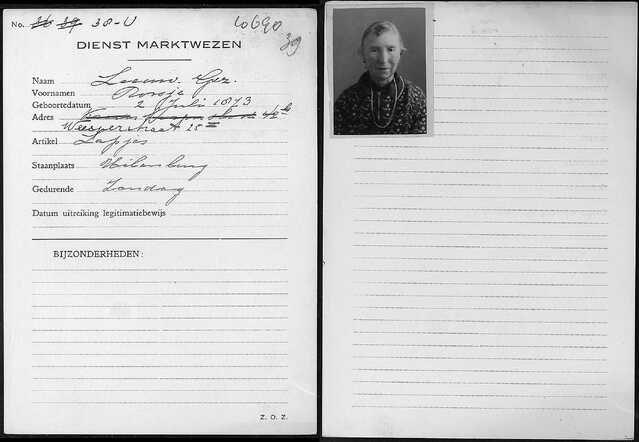 No. 36 39 38-U 10690
39
DIENST MARKTWEZEN
Naam Leeuw. Gez.
Voornamen Roosje
Geboortedatum 2 Juli 1873
Adres
Weesperstraat 25 II
Artikel Lapjes
Staanplaats Uilenburg
Gedurende Zondag
Datum uitreiking legitimatiebewijs
BIJZONDERHEDEN:
Z. O. Z.